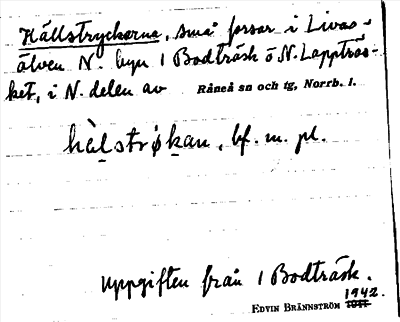 Hällstryckorna, små forsar i Livas-
älven N. byn 1 Bodträsk ö N. Lappträs-
ket, i N. delen av Råneå sn och tg, Norrb. l.
hälstrøkan, bf. m. pl.
Uppgiften från 1 Bodträsk.
1942.
EDVIN BRÄNNSTRÖM 1941